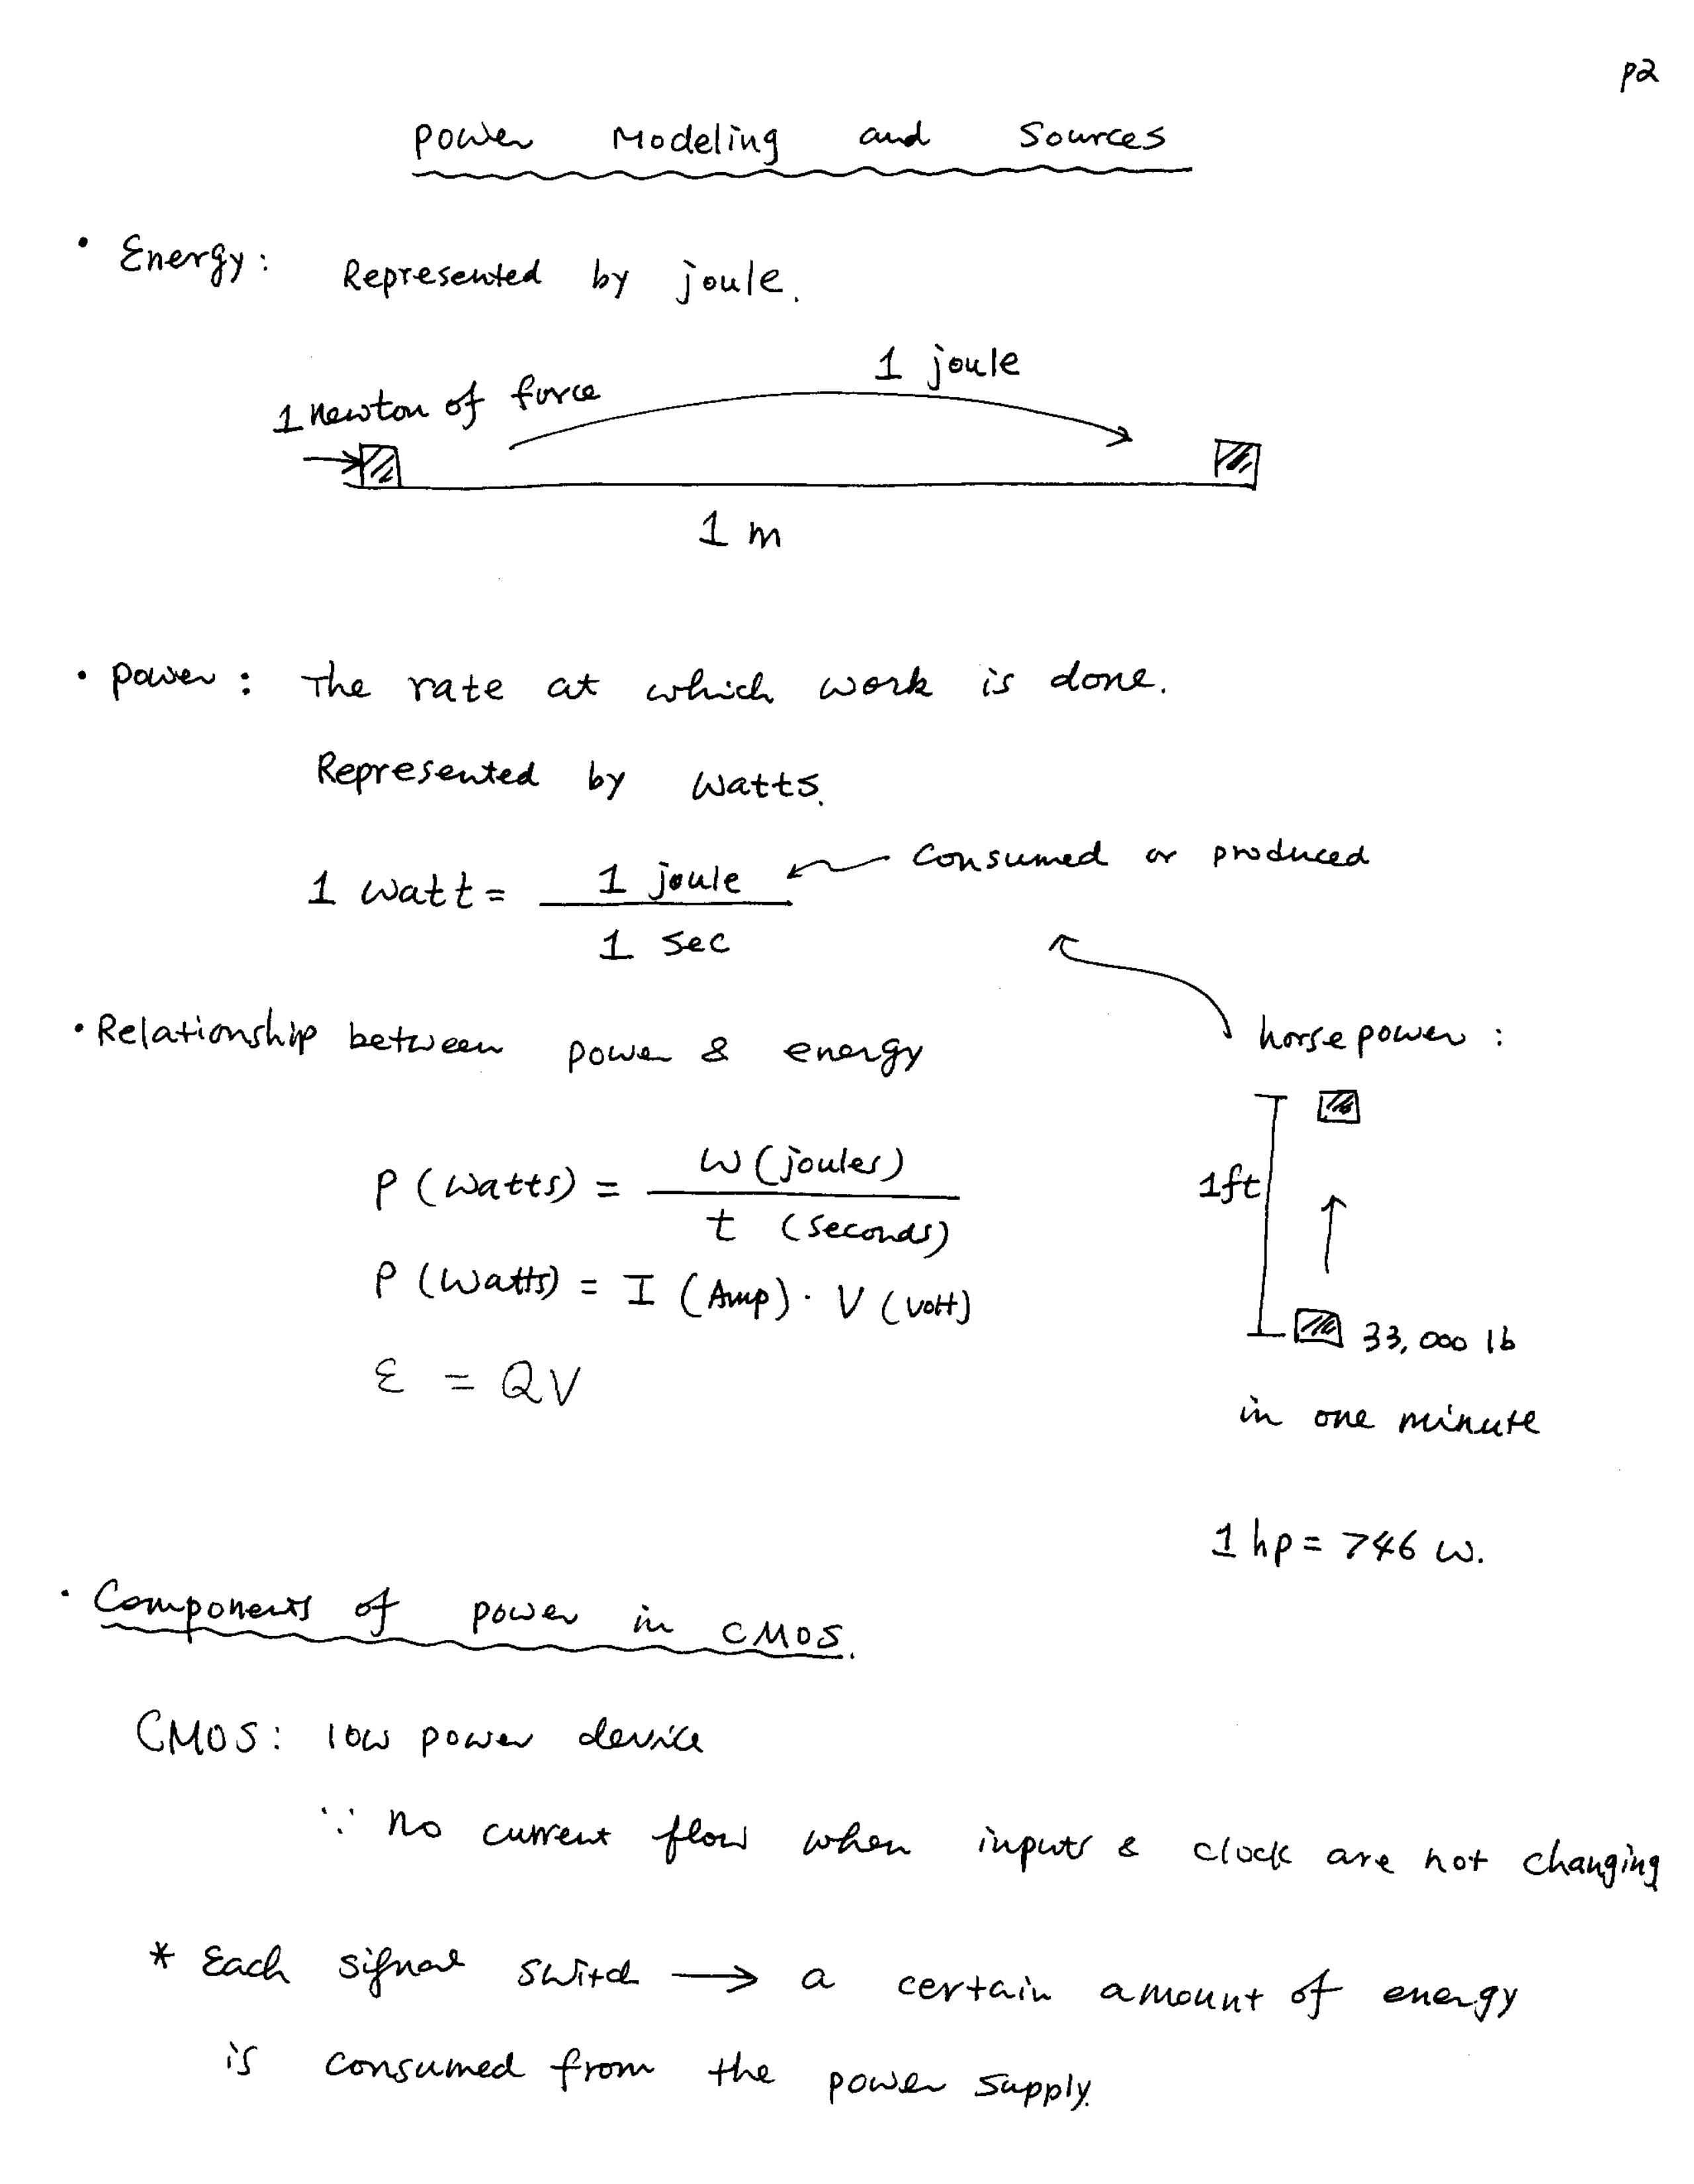 p2
Power Modeling and Sources
• Energy: Represented by joule.
1 joule
1 newton of force
1 m
• Power: The rate at which work is done.
Represented by Watts.
1 watt = 1 joule / 1 sec
Consumed or produced
• Relationship between power & energy
horsepower:
P (Watts) = W (joules) / t (seconds)
1ft
P (Watts) = I (Amp) · V (Volt)
33,000 lb
ε = QV
in one minute
1 hp = 746 w.
• Components of power in CMOS.
CMOS: low power device
∵ no current flow when inputs & clock are not changing
* Each signal switch → a certain amount of energy
is consumed from the power supply.